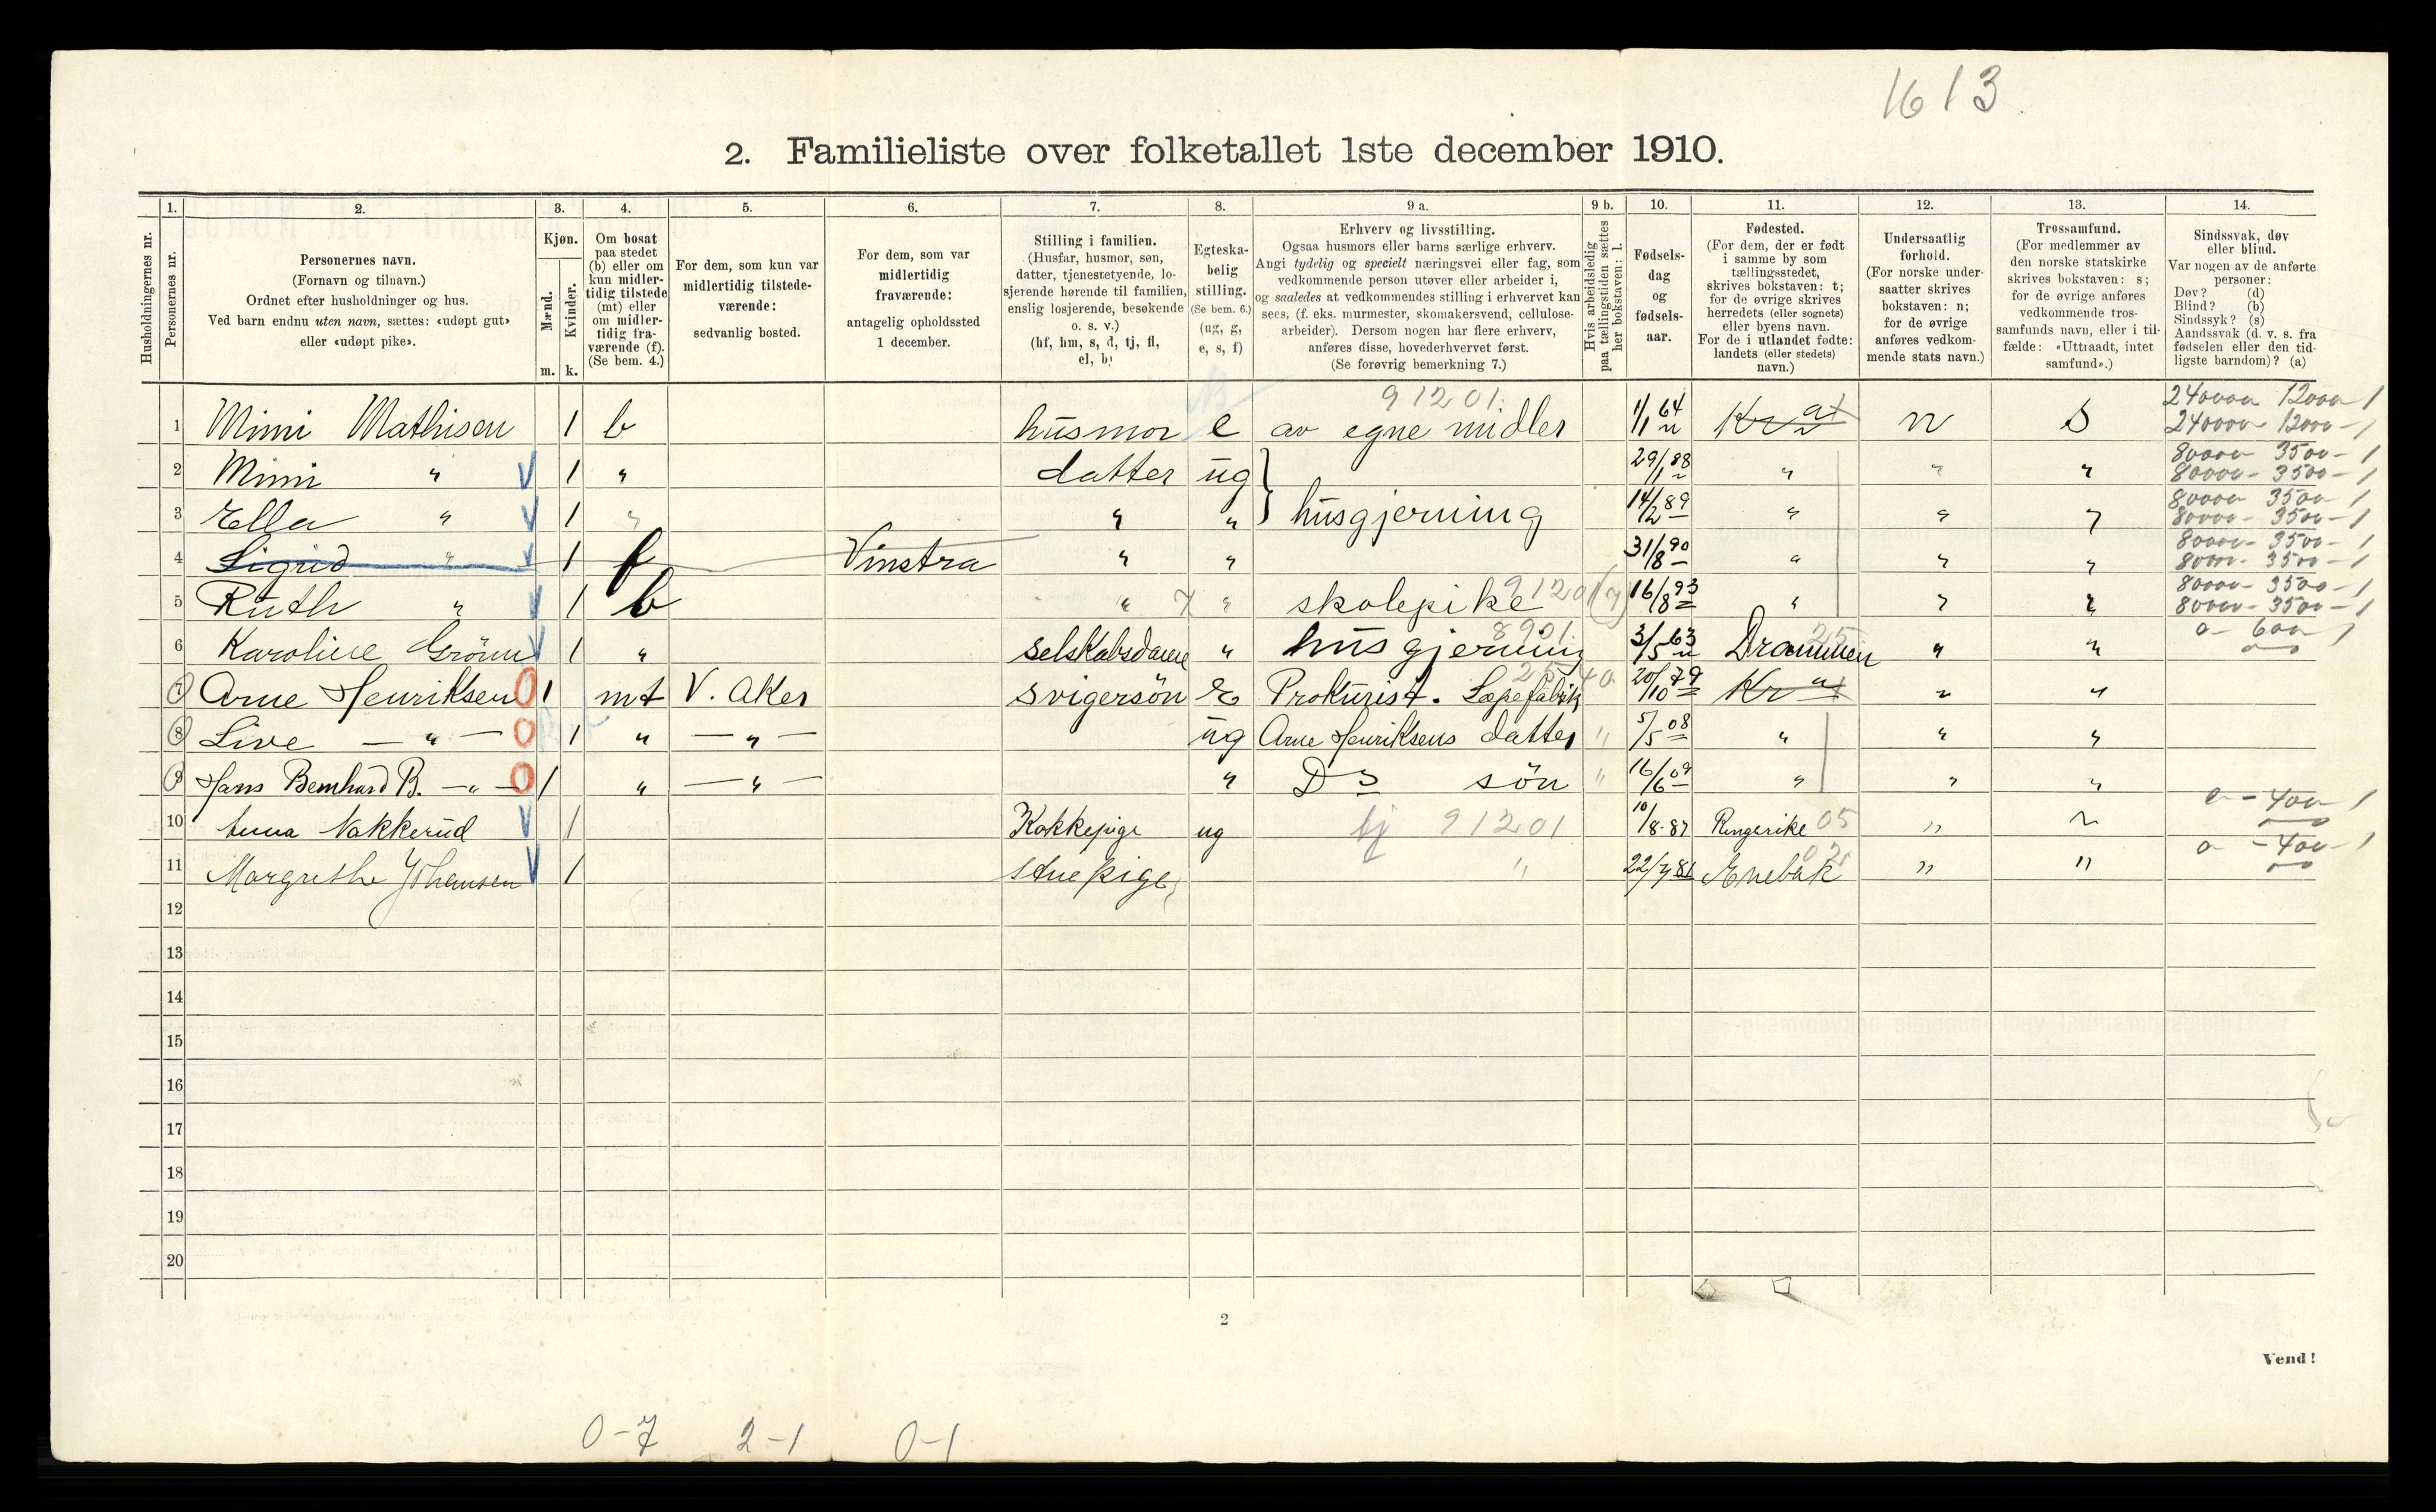 1613
2. Familieliste over folketallet 1ste december 1910.
1. 2. 3. 4. 5. 6. 7. 8. 9 a. 9 b. 10. 11. 12. 13. 14.
Husholdningernes nr.
Personernes nr.
Personernes navn.
(Fornavn og tilnavn.)
Ordnet efter husholdninger og hus.
Ved barn endnu uten navn, sættes: «udøpt gut»
eller «udøpt pike».
Kjøn.
Mænd.
Kvinder.
m. k.
Om bosat
paa stedet
(b) eller om
kun midler-
tidig tilstede
(mt) eller
om midler-
tidig fra-
værende (f).
(Se bem. 4.)
For dem, som kun var
midlertidig tilstede-
værende:
sedvanlig bosted.
For dem, som var
midlertidig
fraværende:
antagelig opholdssted
1 december.
Stilling i familien.
(Husfar, husmor, søn,
datter, tjenestetyende, lo-
sjerende hørende til familien,
enslig losjerende, besøkende
o. s. v.)
(hf, hm, s, d, tj, fl,
el, b)
Egteska-
belig
stilling.
(Se bem. 6.)
(ug, g,
e, s, f)
Erhverv og livsstilling.
Ogsaa husmors eller barns særlige erhverv.
Angi tydelig og specielt næringsvei eller fag, som
vedkommende person utøver eller arbeider i,
og saaledes at vedkommendes stilling i erhvervet kan
sees, (f. eks. murmester, skomakersvend, cellulose-
arbeider). Dersom nogen har flere erhverv,
anføres disse, hovederhvervet først.
(Se forøvrig bemerkning 7.)
Hvis arbeidsledig
paa tællingstiden sættes
her bokstaven: l.
Fødsels-
dag
og
fødsels-
aar.
Fødested.
(For dem, der er født
i samme by som
tællingsstedet,
skrives bokstaven: t;
for de øvrige skrives
herredets (eller sognets)
eller byens navn.
For de i utlandet fødte:
landets (eller stedets)
navn.)
Undersaatlig
forhold.
(For norske under-
saatter skrives
bokstaven: n;
for de øvrige
anføres vedkom-
mende stats navn.)
Trossamfund.
(For medlemmer av
den norske statskirke
skrives bokstaven: s;
for de øvrige anføres
vedkommende tros-
samfunds navn, eller i til-
fælde: «Uttraadt, intet
samfund».)
Sindssvak, døv
eller blind.
Var nogen av de anførte
personer:
Døv? (d)
Blind? (b)
Sindssyk? (s)
Aandssvak (d. v. s. fra
fødselen eller den tid-
ligste barndom)? (a)
91201. 240000 12000 1
1 Mimi Mathisen 1 b husmor e av egne midler 1/1 64 Kr a t n S 240000 12000 - 1
80000 3500 - 1
2 Mimi " V 1 " datter ug } 29/1 88 " " " 80000 - 3500 - 1
80000 3500 - 1
3 Ella " V 1 " " " husgjerning 14/2 89 " " " 80000 - 3500 - 1
80000 - 3500 - 1
4 Sigrid " V 1 f Vinstra " " 31/8 90 " " " 80000 - 3500 - 1
80000 - 3500 - 1
5 Ruth " V 1 b " 7 " skolepike 91201 (7) 16/8 93 " " " 80000 - 3500 - 1
6 Karoline Grönn V 1 " selskabsdame " husgjerning 8901. 3/5 63 Drammen 25 " " 0 - 600 1
7 Arne Henriksen 0 1 mt V. Aker svigersön E Prokurist. Sæpefabrik 25540 20/10 79 Kr a t " "
8 Live — " — 0 1 " — " — ug Arne Henriksens datter " 5/5 08 " " "
9 Hans Bernhard B. — " — 0 1 " — " — " Do sön " 16/6 09 " " "
10 Anna Nakkerud V 1 Kokkepige ug tj 91201 10/8-87 Ringerike 05 " " 0 - 400 1
11 Margrethe Johansen V 1 Stuepige " 22/7 81 Enebak 02 " " 0 - 400 - 1
12
13
14
15
16
17
18
19
20
2
Vend!
0-7 2-1 0-1